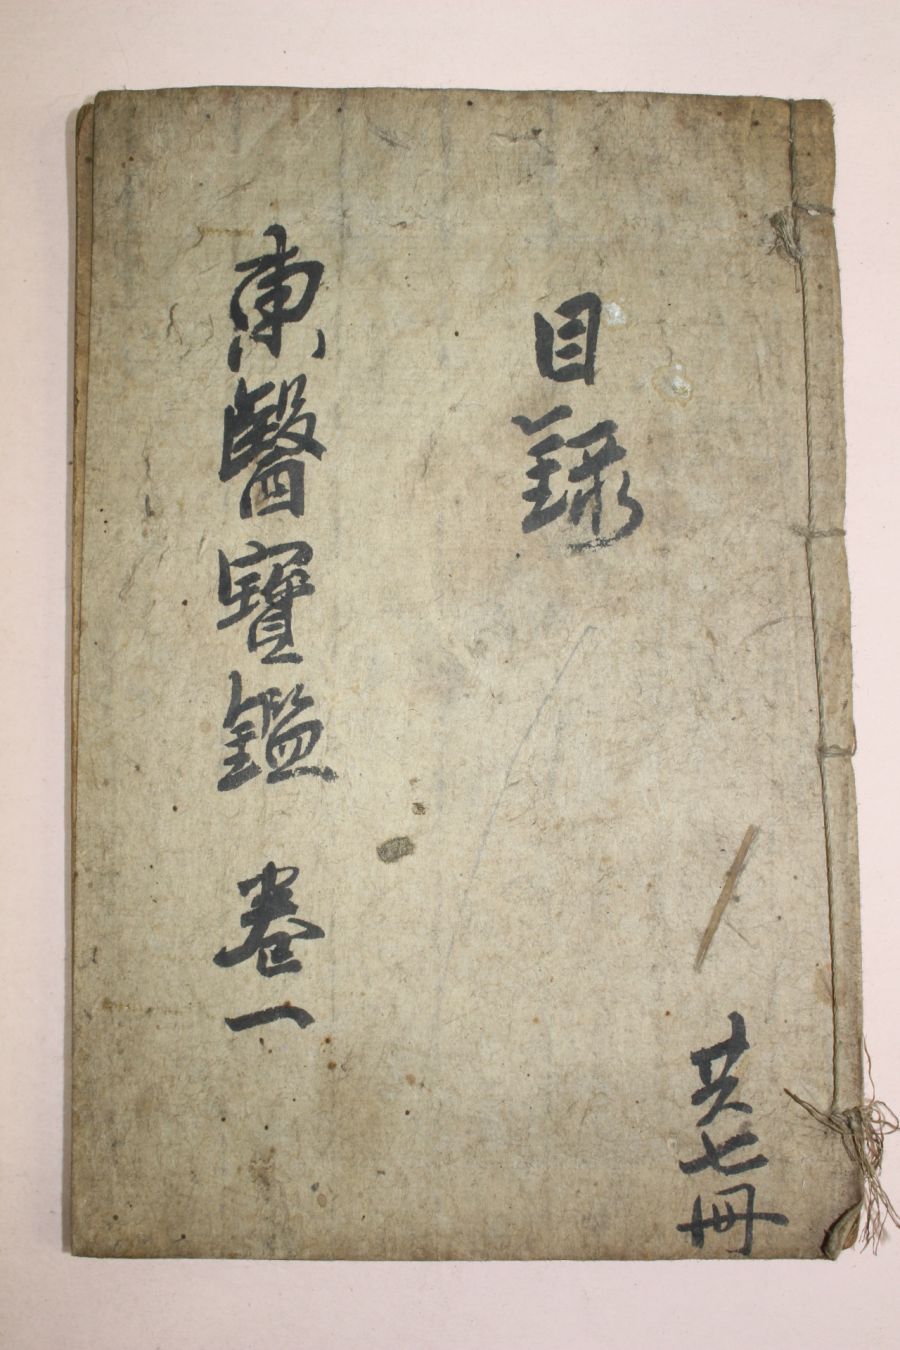 目錄
共七冊
東醫寶鑑 卷一